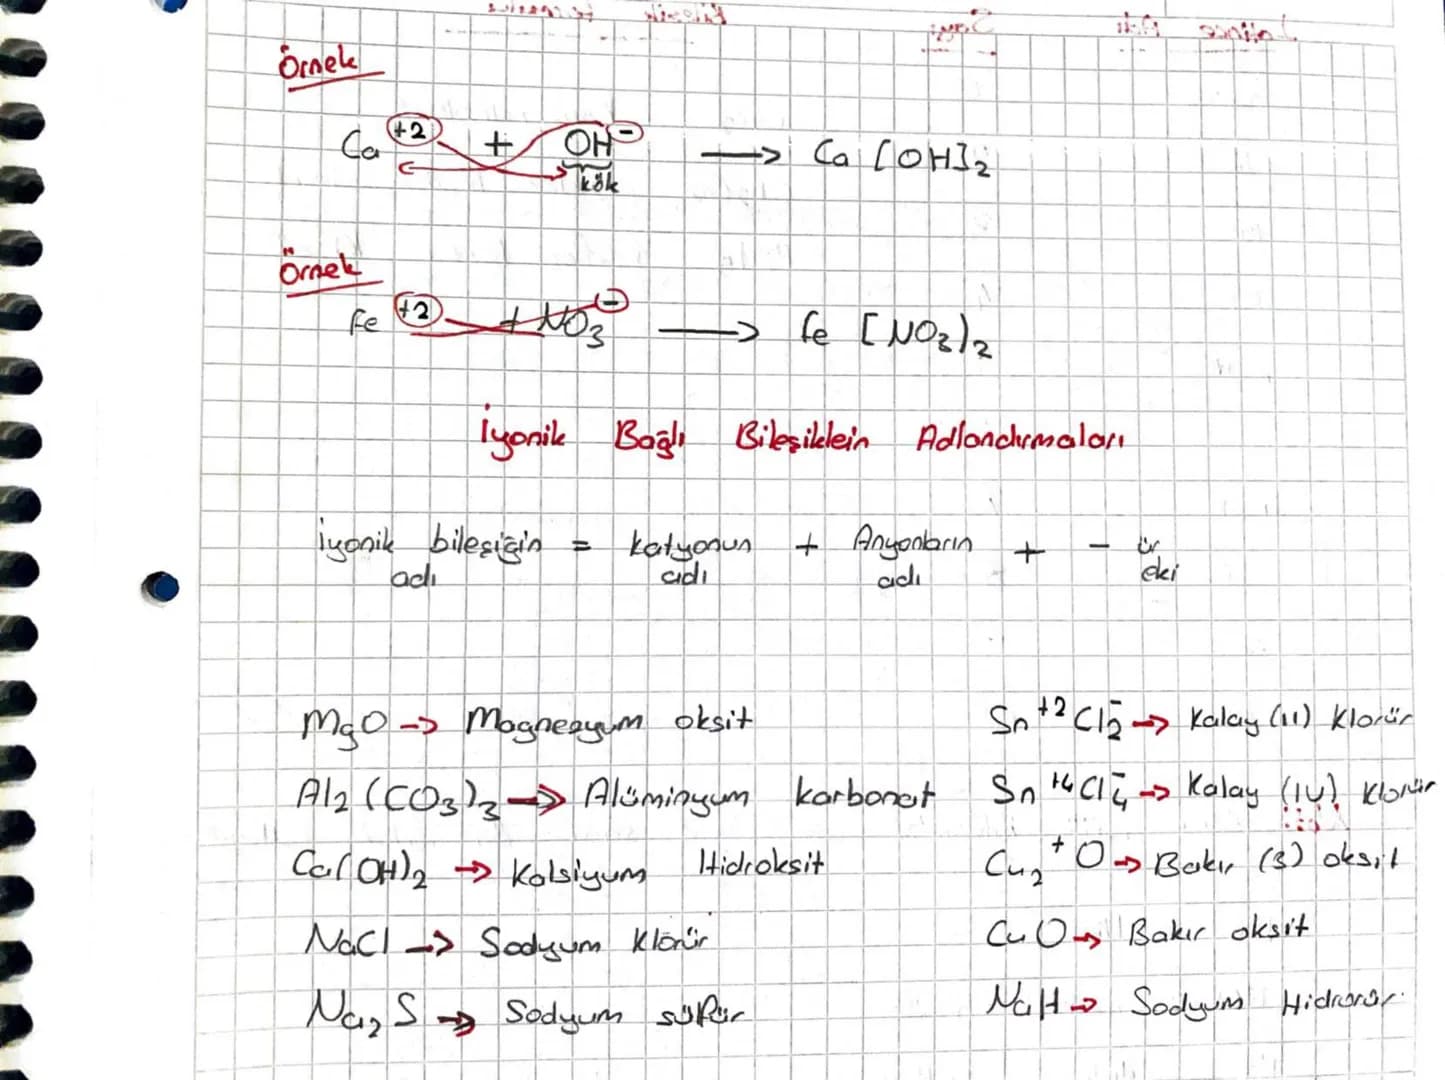 Örnek
Ca +2 + OH⁻ → Ca [OH]₂
kök
Örnek
Fe +2 + NO₃ ⁻ → Fe [NO₃)₂
İyonik Bağlı Bileşiklein Adlandırmaları
İyonik bileşiğin adı = katyonun adı + Anyonların adı + - ür eki
MgO → Magnezyum oksit
Al₂(CO₃)₃ → Alüminyum karbonat
Ca(OH)₂ → Kalsiyum Hidroksit
NaCl → Sodyum Klorür
Na₂S → Sodyum sülfür
Sn⁺²Cl₂⁻ → Kalay (II) Klorür
Sn⁺⁴Cl₄⁻ → Kalay (IV) Klorür
Cu₂⁺O → Bakır (3) oksit
CuO → Bakır oksit
NaH → Sodyum Hidrorür